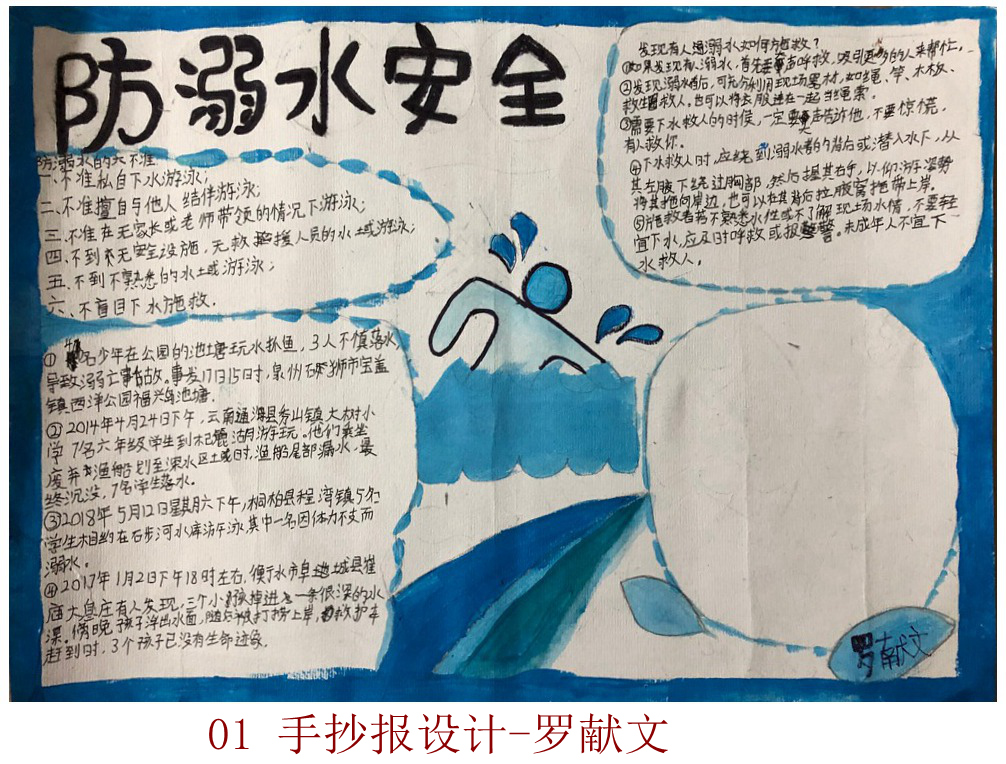 防溺水安全
防溺水的六不准
一、不准私自下水游泳；
二、不准擅自与他人结伴游泳；
三、不准在无家长或老师带领的情况下游泳；
四、不到无安全设施，无救援人员的水域游泳；
五、不到不熟悉的水域游泳；
六、不盲目下水施救．
①名少年在公园的池塘玩水抓鱼，3人不慎落水，
导致溺亡事故。事发17日15时，泉州石狮市宝盖
镇西洋公园福兴池塘．
②2014年4月24日下午，云南通海县秀山镇大树小
学7名六年级学生到杞麓湖游玩。他们乘坐
废弃渔船划至深水区域时，渔船尾部漏水，最
终沉没，7名学生落水。
③2018年5月12日星期六下午，桐柏县程湾镇5名
学生相约在石步河水库游泳，其中一名因体力不支而
溺水。
④2017年1月2日下午18时左右，衡水市阜城县崔
庙大息庄有人发现，三个小孩掉进一条很深的水
渠。傍晚，孩子浮出水面，随后被打捞上岸，救护车
赶到时，3个孩子已没有生命迹象．
发现有人遇溺水如何施救？
①如果发现有人溺水，首先要大声呼救，吸引更多的人来帮忙。
②发现溺水者后，可充分利用现场器材，如绳、竿、木板、
救生圈救人。也可以将衣服连在一起当绳索．
③需要下水救人的时候，一定要大声告诉他，不要惊慌，
有人救你．
④下水救人时，应绕到溺水者的背后或潜入水下，从
其左腋下绕过胸部，然后握其右手，以仰游姿势
将其拖向岸边，也可以在其背后拉腋窝拖带上岸。
⑤施救者若不熟悉水性或不了解现场水情，不要轻
宜下水，应及时呼救或报警。未成年人不宜下
水救人。
罗献文
01 手抄报设计-罗献文